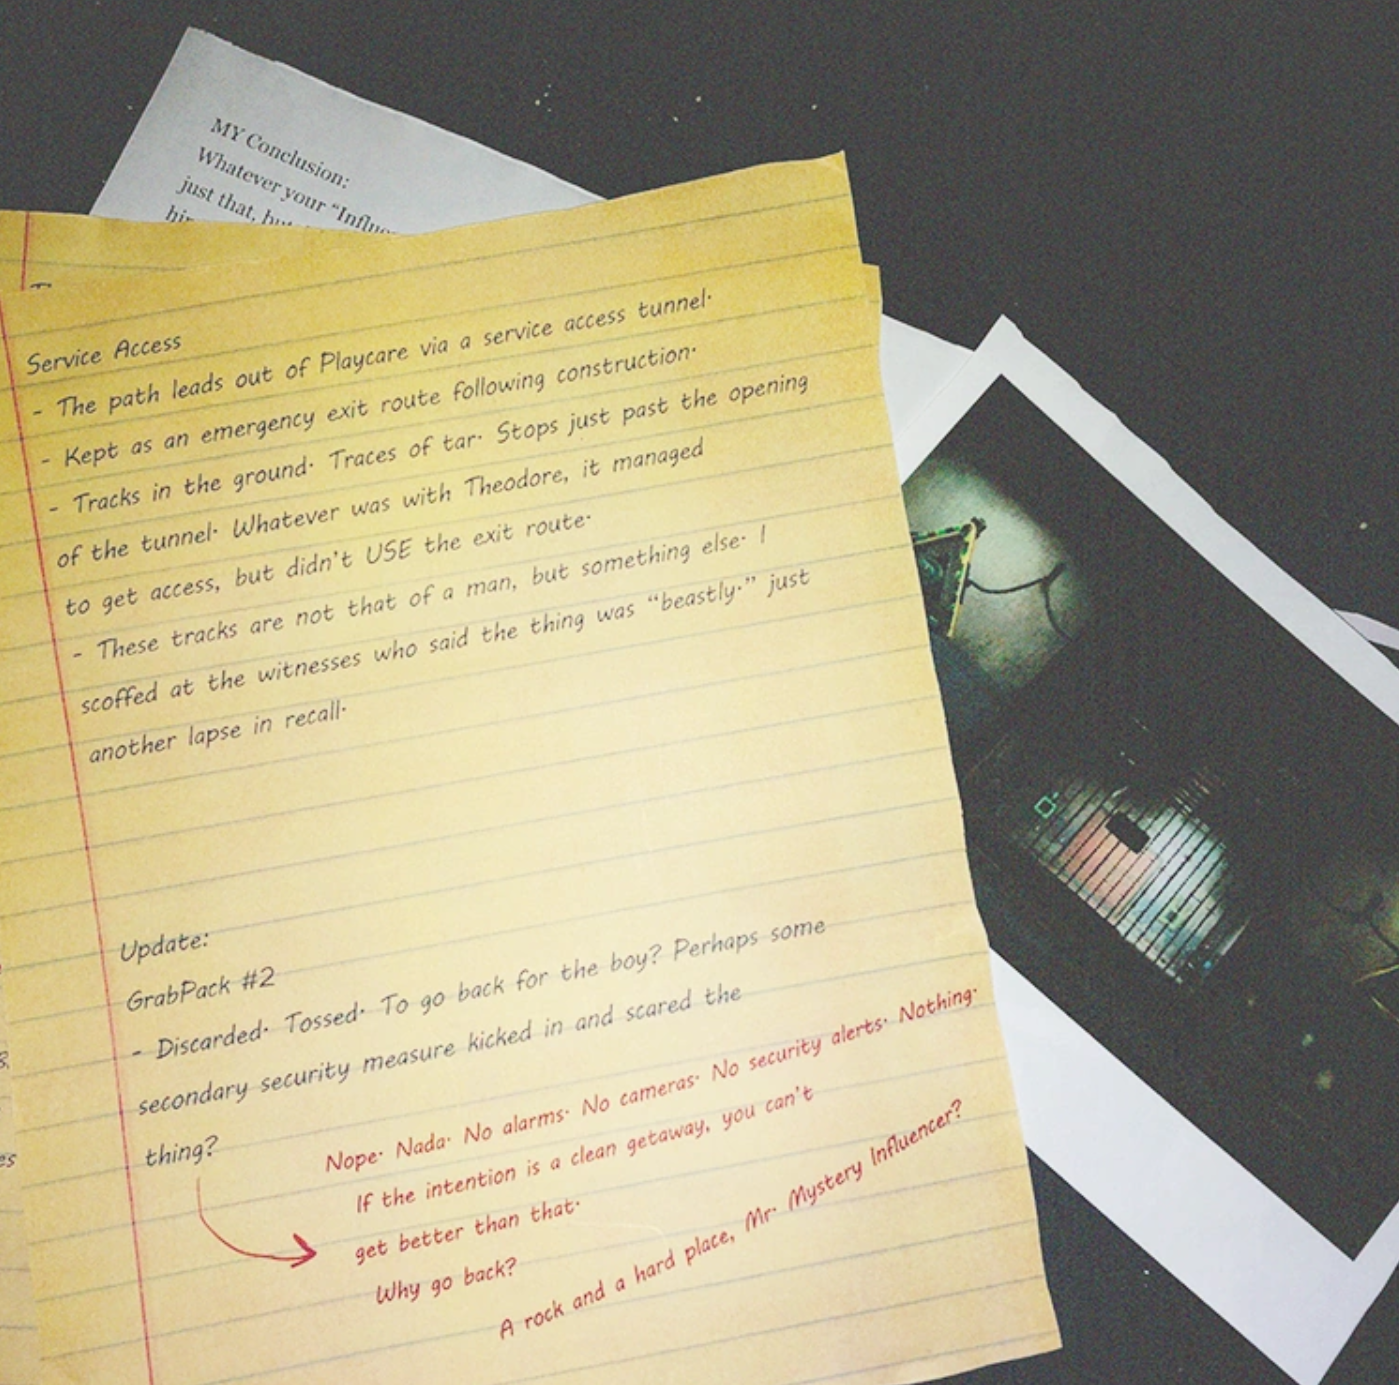 MY Conclusion:
Whatever your “Influe
just that, but
Service Access
- The path leads out of Playcare via a service access tunnel.
- Kept as an emergency exit route following construction.
- Tracks in the ground. Traces of tar. Stops just past the opening
of the tunnel. Whatever was with Theodore, it managed
to get access, but didn't USE the exit route.
- These tracks are not that of a man, but something else. I
scoffed at the witnesses who said the thing was “beastly.” just
another lapse in recall.
Update:
GrabPack #2
- Discarded. Tossed. To go back for the boy? Perhaps some
secondary security measure kicked in and scared the
thing?
Nope. Nada. No alarms. No cameras. No security alerts. Nothing.
If the intention is a clean getaway, you can't
get better than that.
Why go back?
A rock and a hard place, Mr. Mystery Influencer?